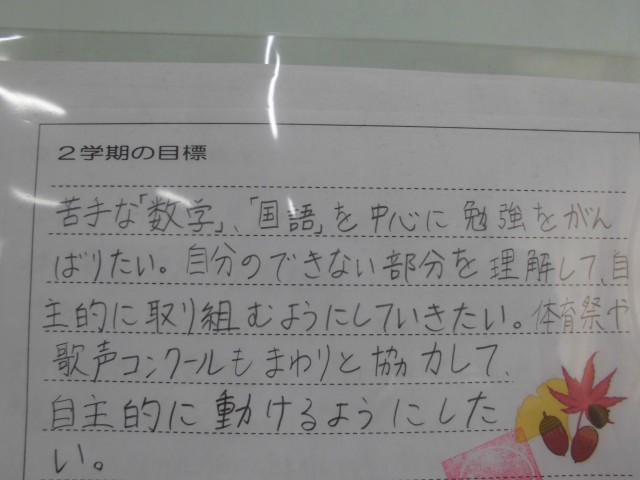 2学期の目標
苦手な「数学」、「国語」を中心に勉強をがん
ばりたい。自分のできない部分を理解して、自
主的に取り組むようにしていきたい。体育祭や
歌声コンクールもまわりと協力して、
自主的に動けるようにした
い。